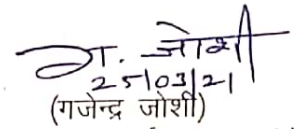 ग. जोशी
25/03/21
(गजेन्द्र जोशी)